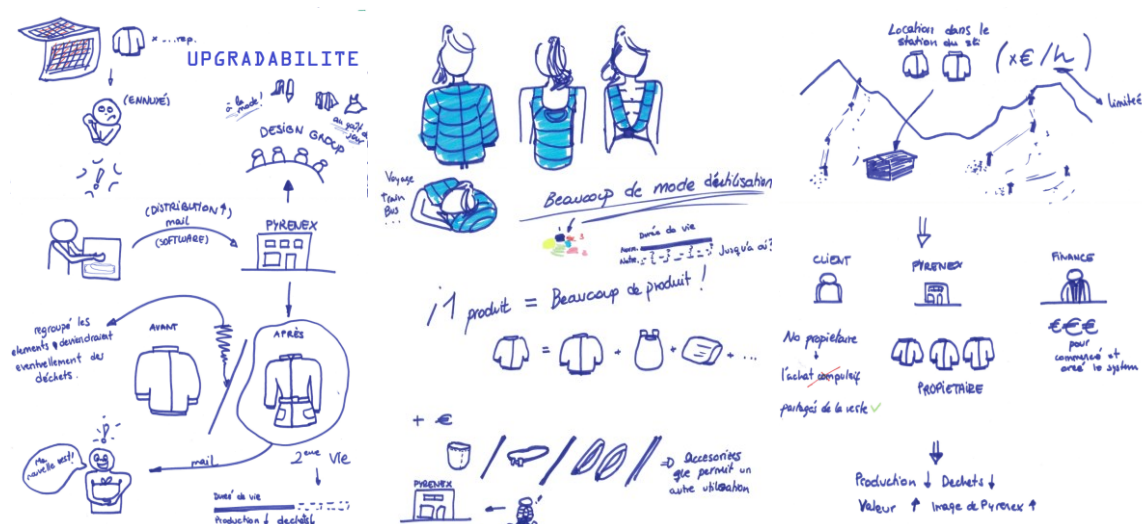 x ... rep.
UPGRADABILITE
(ENNUYÉ)
à la
mode!
au goût du
jour
DESIGN GROUP
(DISTRIBUTION ↑)
mail
(SOFTWARE)
PYRENEX
regroupé les
elements q deviendraient
eventuellement des
déchets.
AVANT
APRÈS
Ma
nouvelle vest!
mail
2eme Vie
Dureé de vie
Production ↓ dechets↓
Voyage
train
Bus
...
Beaucoup de mode d'eutilisation
Durée de vie
Norm.
Notre.
Jusqu'a où?
¡1 produit = Beaucoup de produit !
= + + + ...
+ €
=> Accesoriers
que permit un
autre utilisation
PYRENEX
Location dans le
station du ski
(x€/h)
limiteé
CLIENT
PYRENEX
FINANCE
No propietaire
l'achat compulsif
partagés de la veste ✓
PROPIETAIRE
€€€
pour
commencé et
creé le system
Production ↓ Dechets ↓
Valeur ↑ Image de Pyrenex ↑